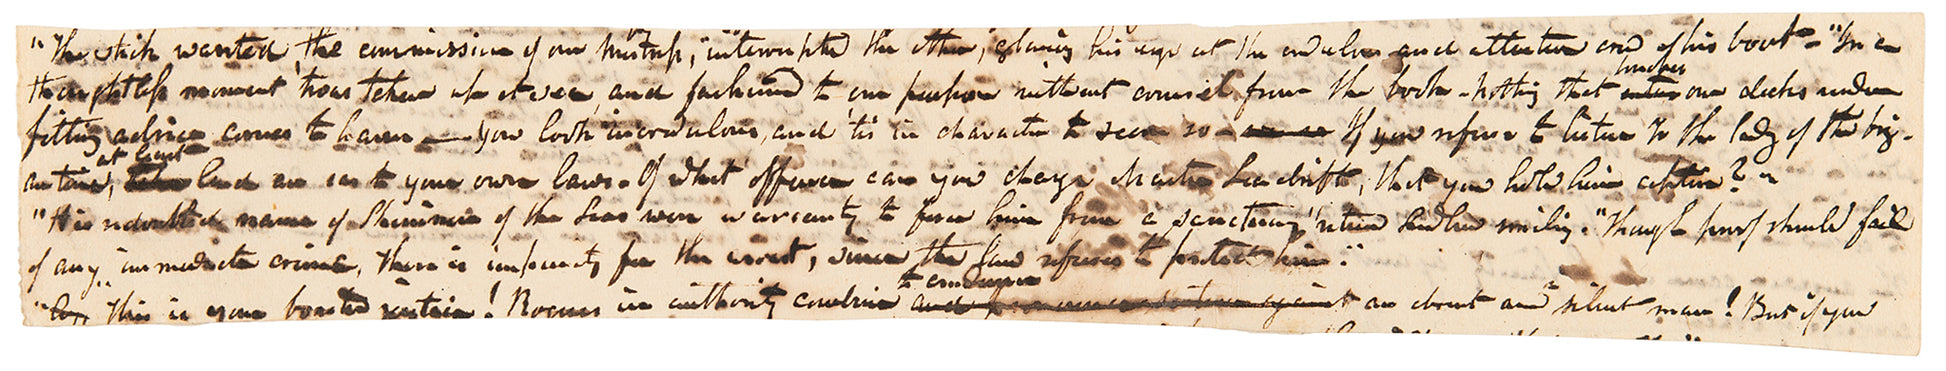 "The stick wanted the commission of our mistress," interrupted the other, glancing his eye at the credulous and attentive crew of his boat - "In a
thoughtless moment 'twas taken up at sea, and fashioned to our purpose without counsel from the book - Nothing that touches our decks under
fitting advice comes to harm - You look incredulous, and 'tis in character to seem so - If you refuse to listen to the lady of the brig-
antine, at least lend an ear to your own laws. Of what offence can you charge Master Seadrift, that you hold him captive?"
"His redoubted name of Skimmer of the Seas were warranty to force him from a sanctuary" returned Ludlow smiling. "Though proof should fail
of any immediate crime, there is impunity for the arrest, since the law refuses to protect him."
"This is your boasted justice! Rogues in authority combine to condemn an absent and silent man! But if you